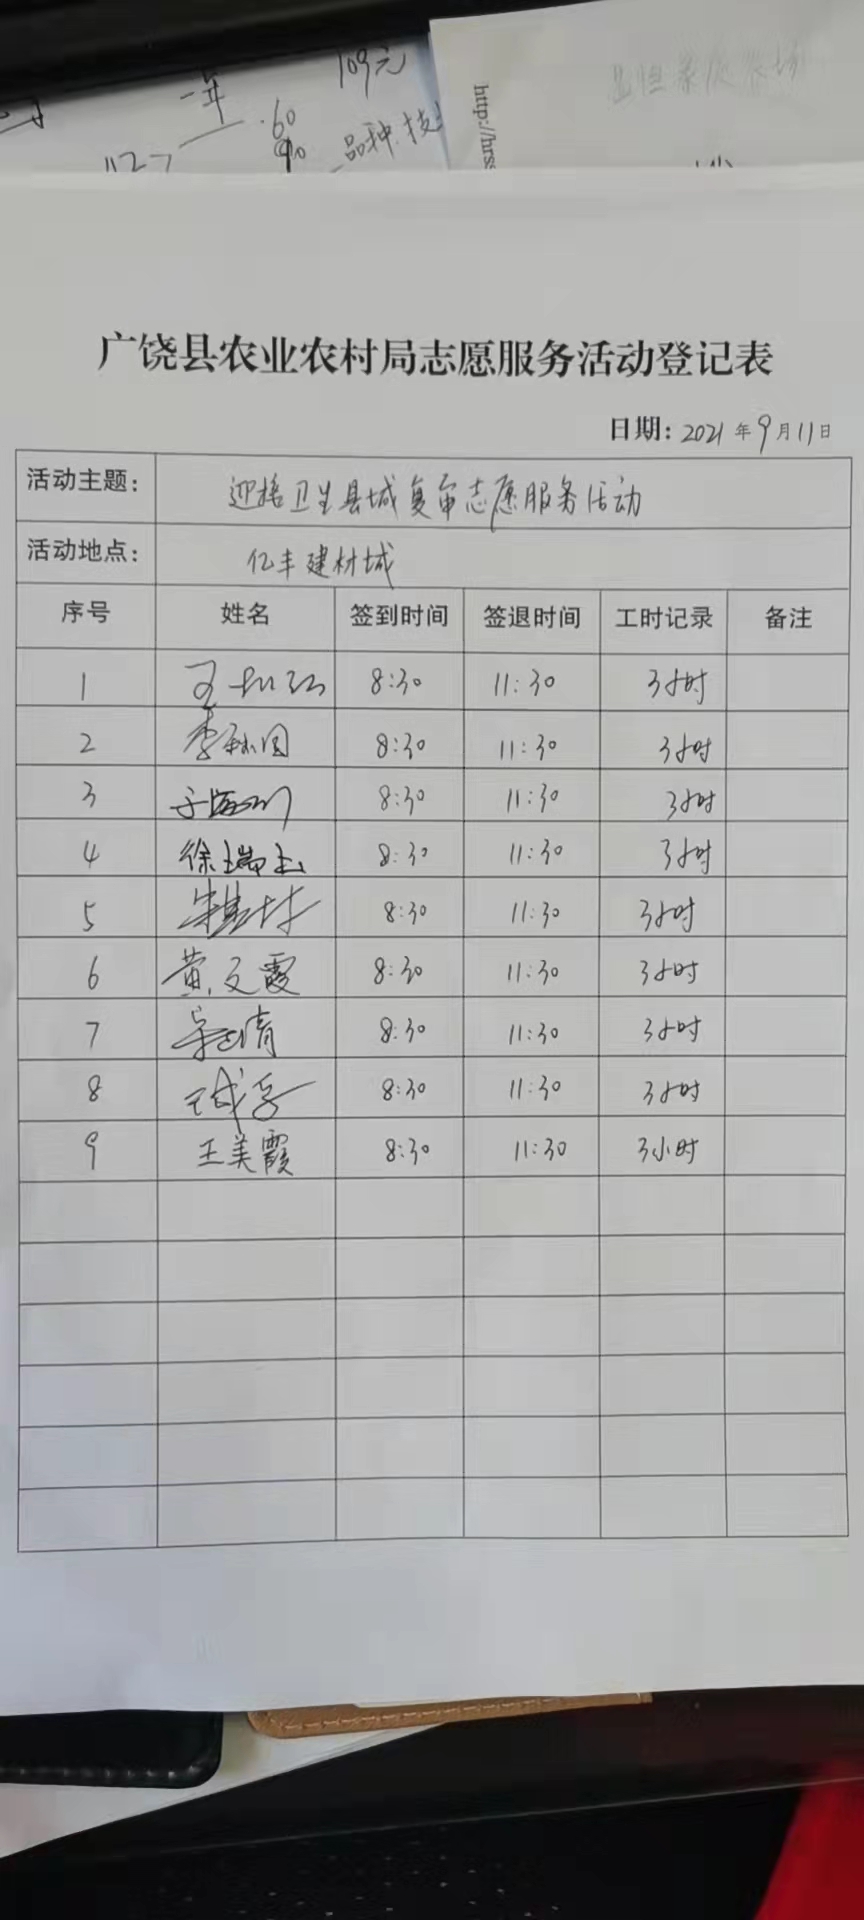 一年
109元
.60
品种.技
http://hrs
广饶县农业农村局志愿服务活动登记表
日期: 2021年9月11日
活动主题: 迎接卫生县城复审志愿服务活动
活动地点: 亿丰建材城
序号 姓名 签到时间 签退时间 工时记录 备注
1 8:30 11:30 3小时
2 8:30 11:30 3小时
3 8:30 11:30 3小时
4 徐瑞玉 8:30 11:30 3小时
5 8:30 11:30 3小时
6 黄文霞 8:30 11:30 3小时
7 8:30 11:30 3小时
8 8:30 11:30 3小时
9 王美霞 8:30 11:30 3小时